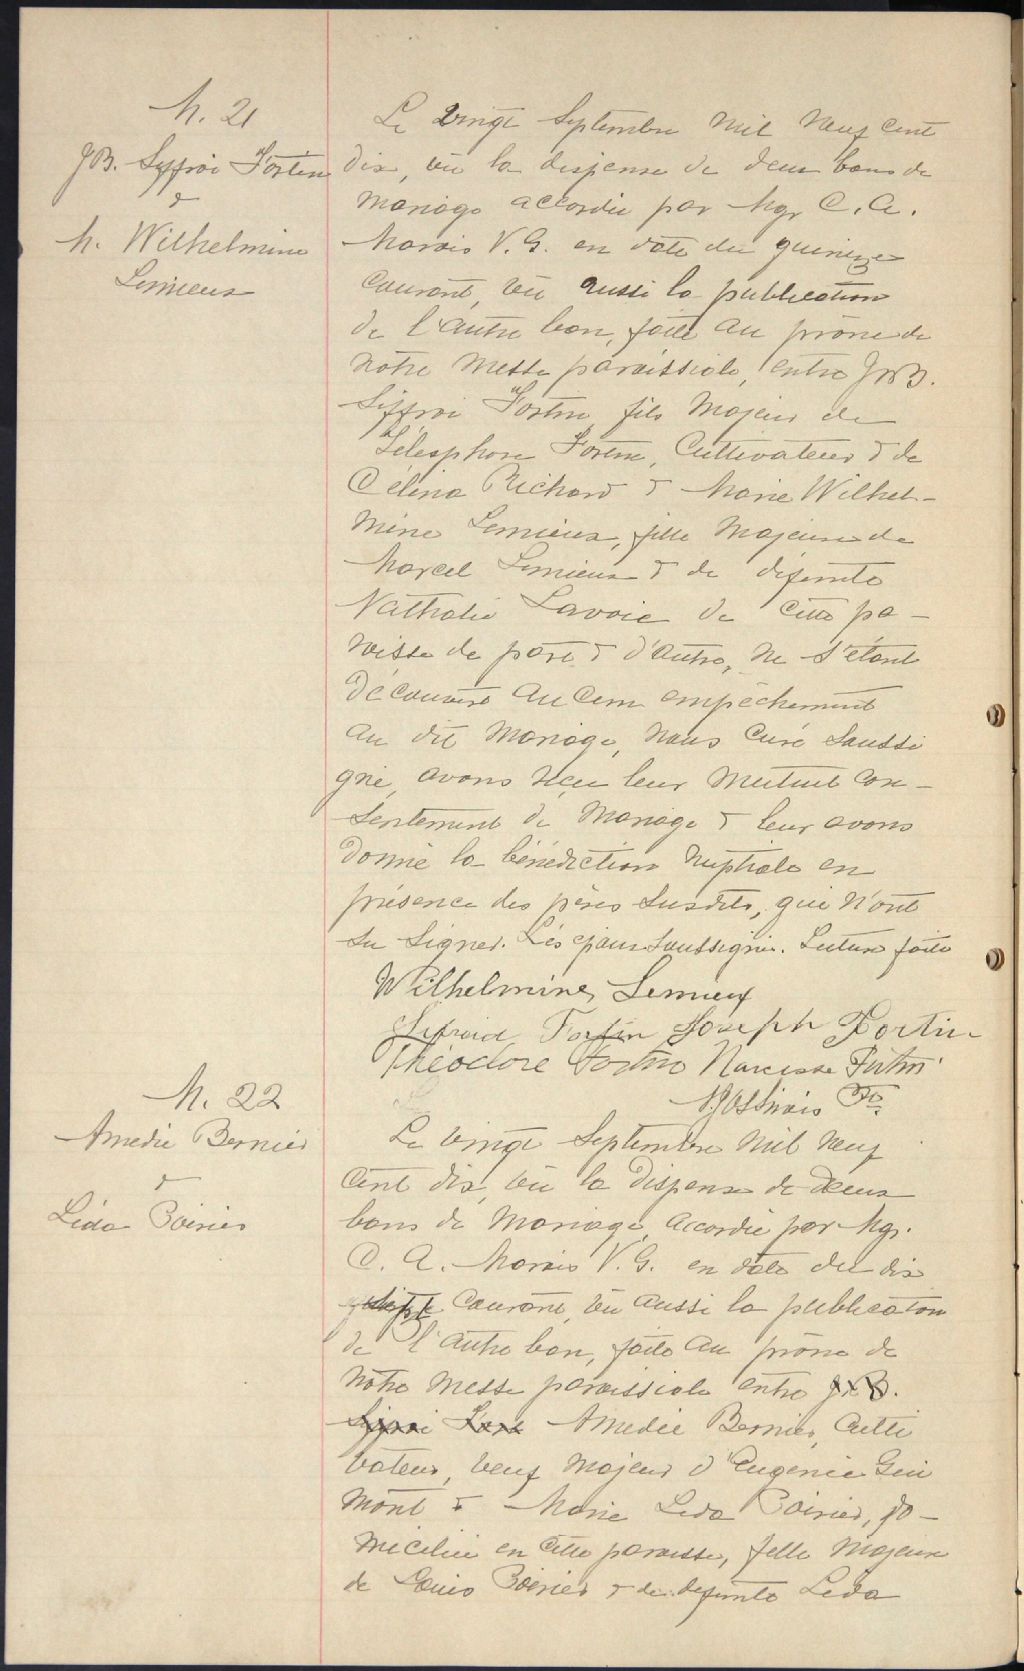 M. 21
J.B. Syffroi Fortin
&
M. Wilhelmine
Lemieux
Le vingt Septembre mil neuf cent
dix, vu la dispense de deux bans de
mariage accordée par Mgr C. A.
Marois V. G. en date du quinze
courant, vu aussi la publication
de l'autre ban, faite au prône de
notre messe paroissiale, entre J. B.
Siffroi Fortin, fils majeur de
Télesphore Fortin, cultivateur & de
Célina Richard & Marie Wilhel-
mine Lemieux, fille majeure de
Marcel Lemieux & de défunte
Nathalie Lavoie de cette pa-
roisse de part & d'autre, ne s'étant
découvert aucun empêchement
au dit mariage, nous curé soussi
gné, avons reçu leur mutuel con-
sentement de mariage & leur avons
donné la bénédiction nuptiale en
présence des pères susdits, qui n'ont
su signer. Les époux soussignés. Lecture faite
Wilhelmine Lemieux
Sifroid Fortin Joseph Fortin
Théodore Fortin Narcisse Fortin
Ptre
M. 22
Amédée Bernier
&
Léda Poirier
Le vingt Septembre mil neuf
cent dix, vu la dispense de deux
bans de mariage, accordée par Mgr.
C. A. Marois V. G. en date du dix
sept courant, vu aussi la publication
de l'autre ban, faite au prône de
notre messe paroissiale entre J. B.
Siffroi Amédée Bernier, culti
vateur, veuf majeur d'Eugénie Gui
mont & Marie Leda Poirier, do-
miciliée en cette paroisse, fille majeure
de Louis Poirier & de défunte Leda